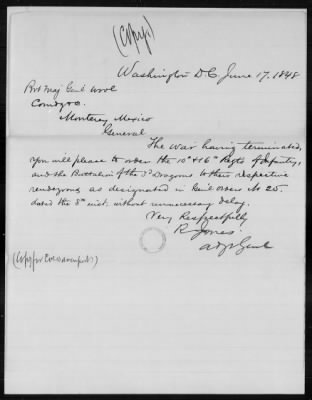 (Copy)
Washington D.C. June 17, 1848
Bvt Maj Genl Wool
Comdg &c.
Monterey Mexico
General
The war having terminated,
you will please to order the 10th & 16th Regts of Infantry,
and the Battalion of the 3d Dragoons to their respective
rendezvous as designated in Genl order No 25.
dated the 8th inst. without unnecessary delay.
Very Respectfully
R Jones.
Adjt Genl
(Copy for